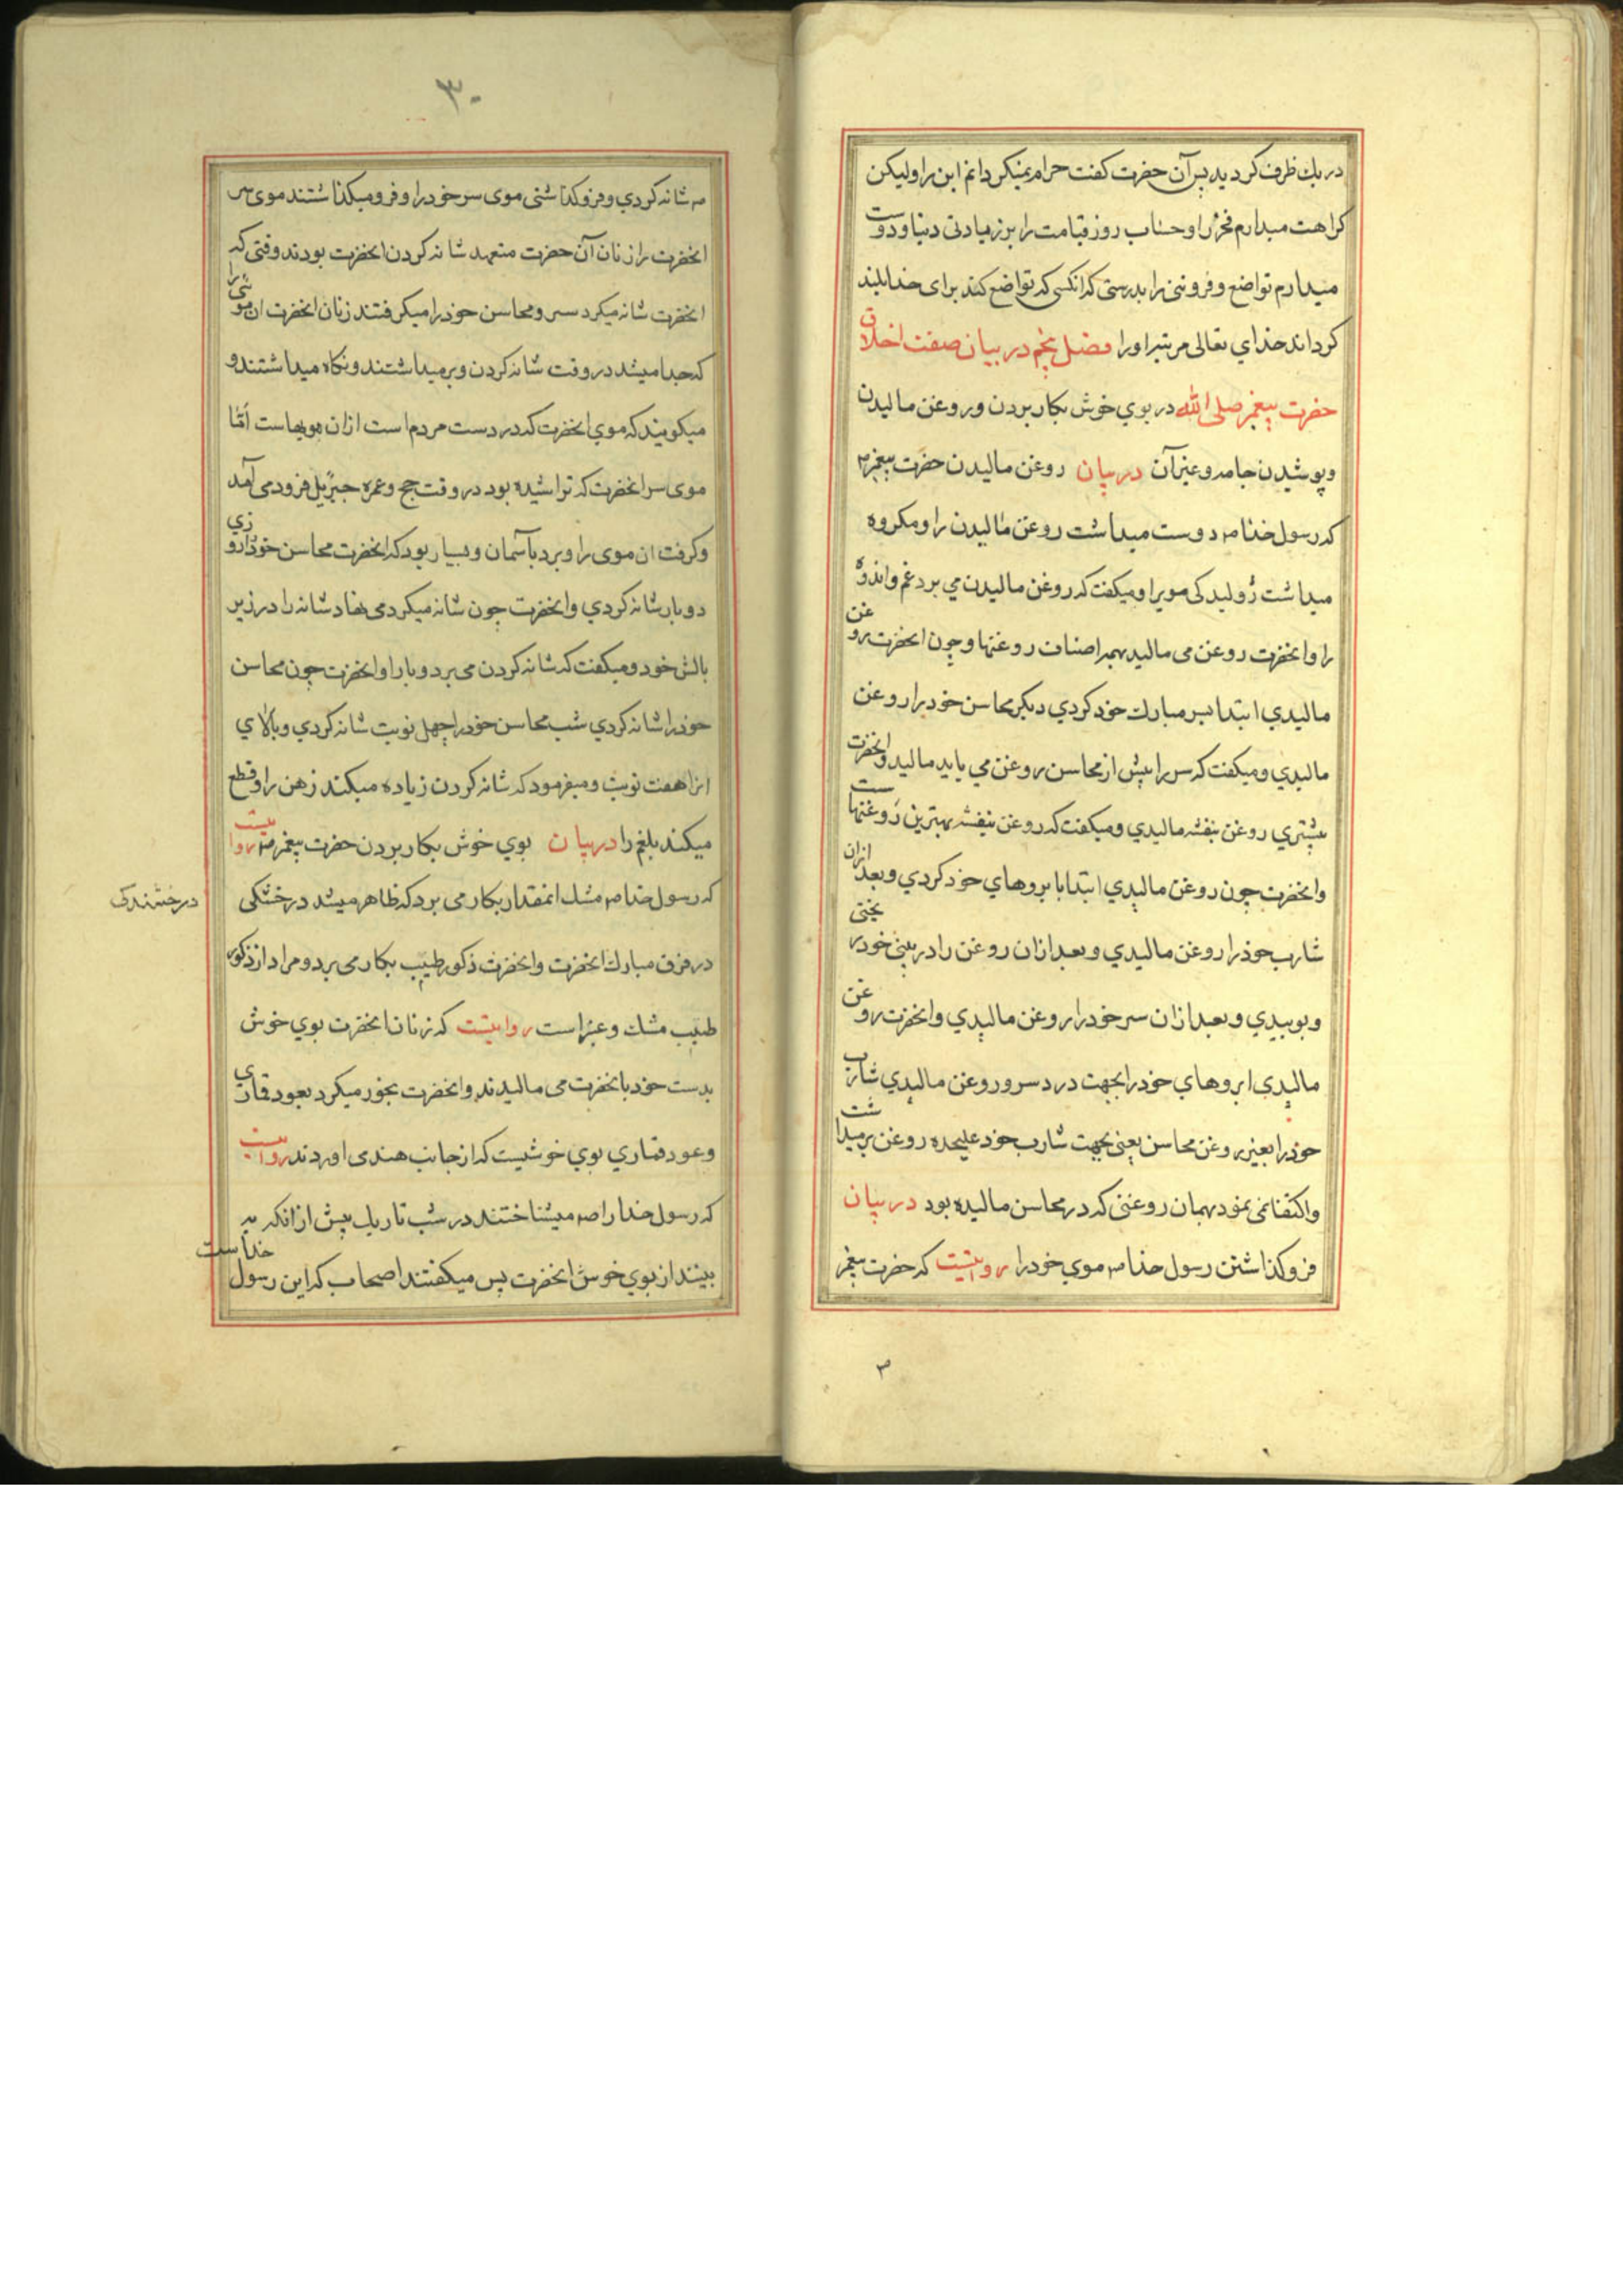 در یك ظرف كردید پس آن حضرت كفت حرام نمیكردانم این را ولیكن
كراهت میدارم فخر را و حساب روز قیامت را بر زیادتی دنیا و دوست
میدارم تواضع و فروتنی را بدرستی كه انكسی كه تواضع كند برای خدا بلند
كرداند خدای تعالی مرتبه او را فصل پنجم در بیان صفت اخلاق
حضرت پیغمبر صلی الله در بوی خوش بكار بردن و روغن مالیدن
و پوشیدن جامه و غیر آن در بیان روغن مالیدن حضرت پیغمبر ص
كه رسول خدا ص دوست میداشت روغن مالیدن را و مكروه
میداشت ژولیدكی مویرا و میكفت كه روغن مالیدن می برد غم و اندوه
را و انحضرت روغن می مالید بهمه اصناف روغنها و چون انحضرت روغن
مالیدی ابتدا بسر مبارك خود كردی دیكر محاسن خود را روغن
مالیدی و میكفت كه سر را پیش از محاسن روغن می باید مالید و انحضرت
بیشتری روغن بنفشه مالیدی و میكفت كه روغن بنفشه بهترین روغنهاست
و انحضرت چون روغن مالیدی ابتدا بابروهای خود كردی و بعد ازان
شارب خود را روغن مالیدی و بعد ازان روغن را در بینی خود ریختی
و بوییدی و بعد ازان سر خود را روغن مالیدی و انحضرت روغن
مالیدی ابروهای خود را بجهت درد سر و روغن مالیدی شارب
خود را بغیر روغن محاسن یعنی بجهت شارب خود علیحده روغن برمیداشت
و اكتفا نمی نمود بهمان روغنی كه در محاسن مالیده بود در بیان
فروكذاشتن رسول خدا ص موی خود را روایتست كه حضرت پیغمبر
۳
۳۰
ص شانه كردی و فروكذاشتی موی سر خود را و فرو میكذاشتند موی سر
انحضرت را زنان آن حضرت متعهد شانه كردن انحضرت بودند وقتی كه
انحضرت شانه میكرد سر و محاسن خود را میكرفتند زنان انحضرت ان موئی را
كه جدا میشد در وقت شانه كردن و بر میداشتند و نكاه میداشتند و
میكویند كه موی انحضرت كه در دست مردم است ازان مویهاست امّا
موی سر انحضرت كه تراشیده بود در وقت حج و عمره جبرئیل فرود می آمد
و كرفت ان موی را و برد بآسمان و بسیار بود كه انحضرت محاسن خود را روزی
دو بار شانه كردی و انحضرت چون شانه میكرد می نهاد شانه را در زیر
بالش خود و میكفت كه شانه كردن می برد وبا را و انحضرت چون محاسن
خود را شانه كردی شب محاسن خود را چهل نوبت شانه كردی و بالای
انرا هفت نوبت و میفرمود كه شانه كردن زیاده میكند ذهن را و قطع
میكند بلغم را در بیان بوی خوش بكار بردن حضرت پیغمبر ص روایتست
كه رسول خدا ص مشك انمقدار بكار می برد كه ظاهر میشد درخشكی
درخشندكی
در فرق مبارك انحضرت و انحضرت ذكور طیب بكار می برد و مراد از ذكور
طیب مشك و عنبر است روایتست كه زنان انحضرت بوی خوش
بدست خود بانحضرت می مالیدند و انحضرت بخور میكرد بعود قماری
و عود قماری بوی خوشیست كه از جانب هندی اوردند روایتست
كه رسول خدا را ص میشناختند در شب تاریك پیش از انكه به
بینند از بوی خوش انحضرت پس میكفتند اصحاب كه این رسول خداست